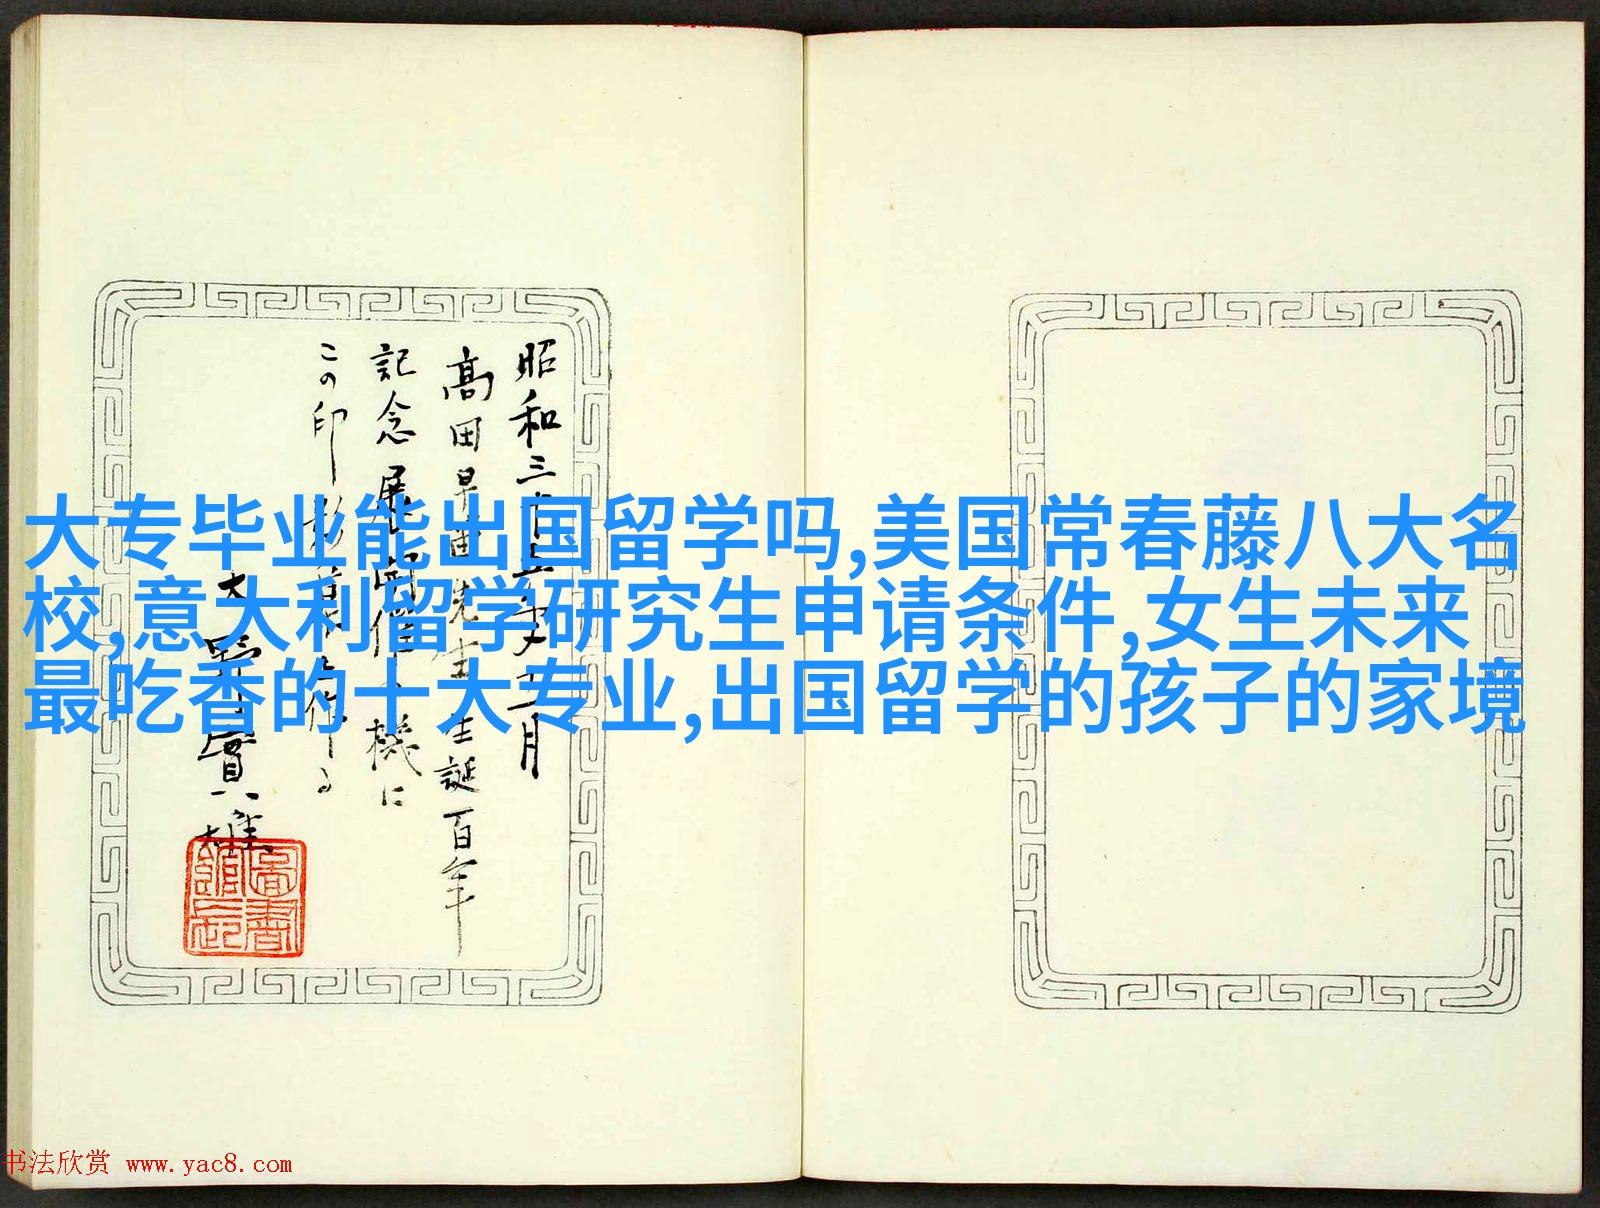 大专毕业能出国留学吗,美国常春藤八大名
校,意大利留学研究生申请条件,女生未来
最吃香的十大专业,出国留学的孩子的家境
昭和三十五年二月
高田早苗先生生誕百年
記念展開催の機に
この印影
大野實雄
書法欣赏 www.yac8.com